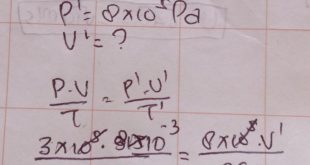 P' = 8×10⁵ Pa
V' = ?
P·V / T = P'·V' / T'
3×10⁵ · 10⁻³ = 8×10⁵ · V'